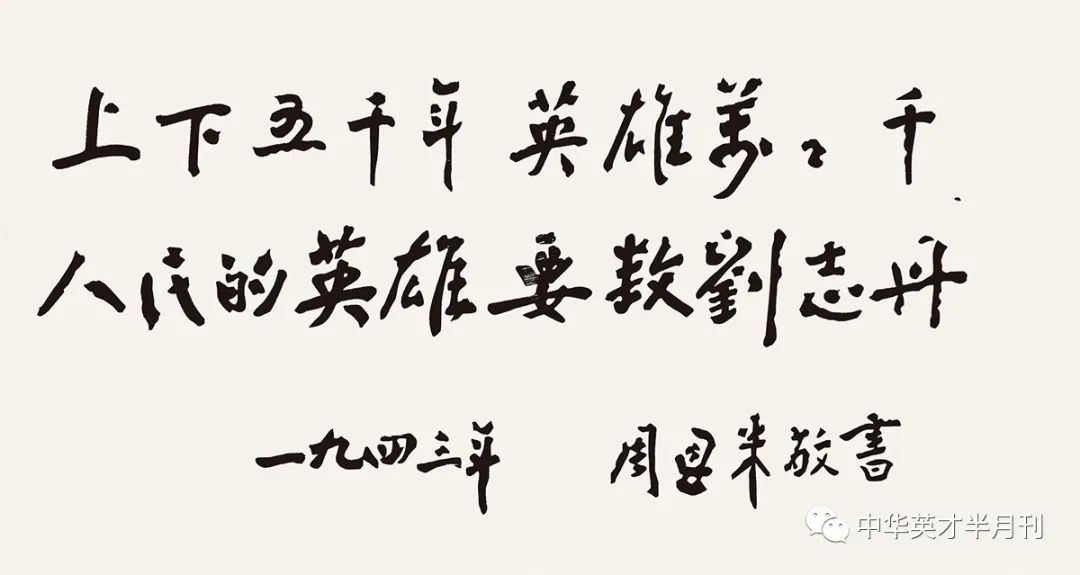 上下五千年 英雄万〻千
人民的英雄要数劉志丹
一九四三年 周恩来敬書
中华英才半月刊